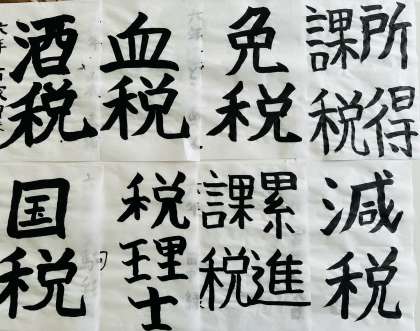 所得
課税
免税
血税
酒税
減税
累進
課税
税理士
国税